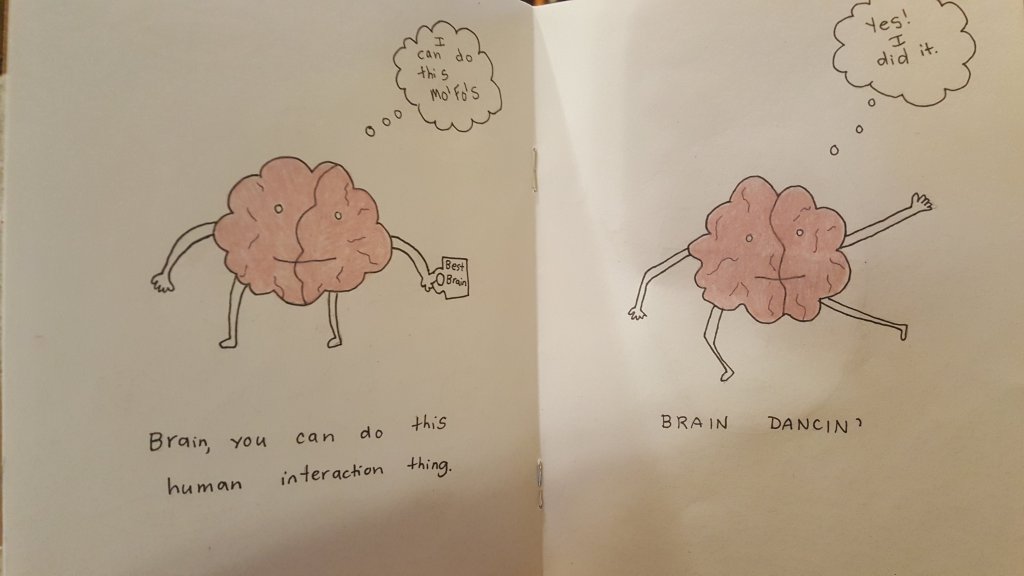 I
can do
this
Mo'Fo's
Best
Brain
Brain, you can do this
human interaction thing.
Yes!
I
did it.
BRAIN DANCIN'